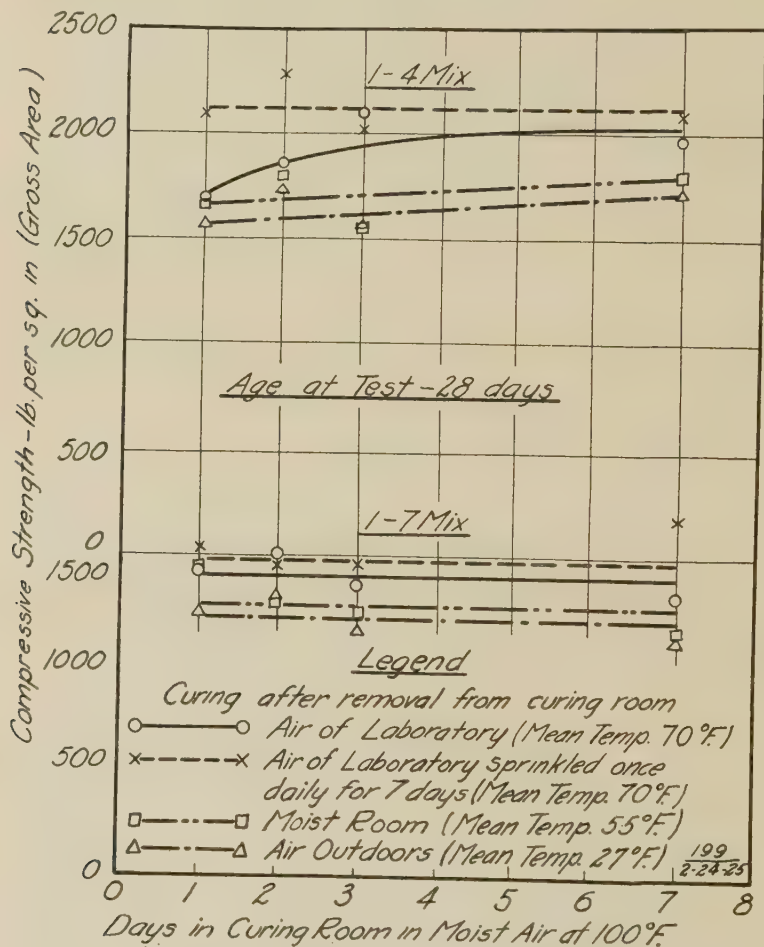 Compressive Strength-lb. per sq. in (Gross Area)
2500
2000
1500
1000
500
0
1500
1000
500
0
1-4 Mix
Age at Test-28 days
1-7 Mix
Legend
Curing after removal from curing room
Air of Laboratory (Mean Temp. 70°F.)
Air of Laboratory sprinkled once
daily for 7 days (Mean Temp. 70°F.)
Moist Room (Mean Temp. 55°F.)
Air Outdoors (Mean Temp. 27°F.)
199
2-24-25
0 1 2 3 4 5 6 7 8
Days in Curing Room in Moist Air at 100°F.